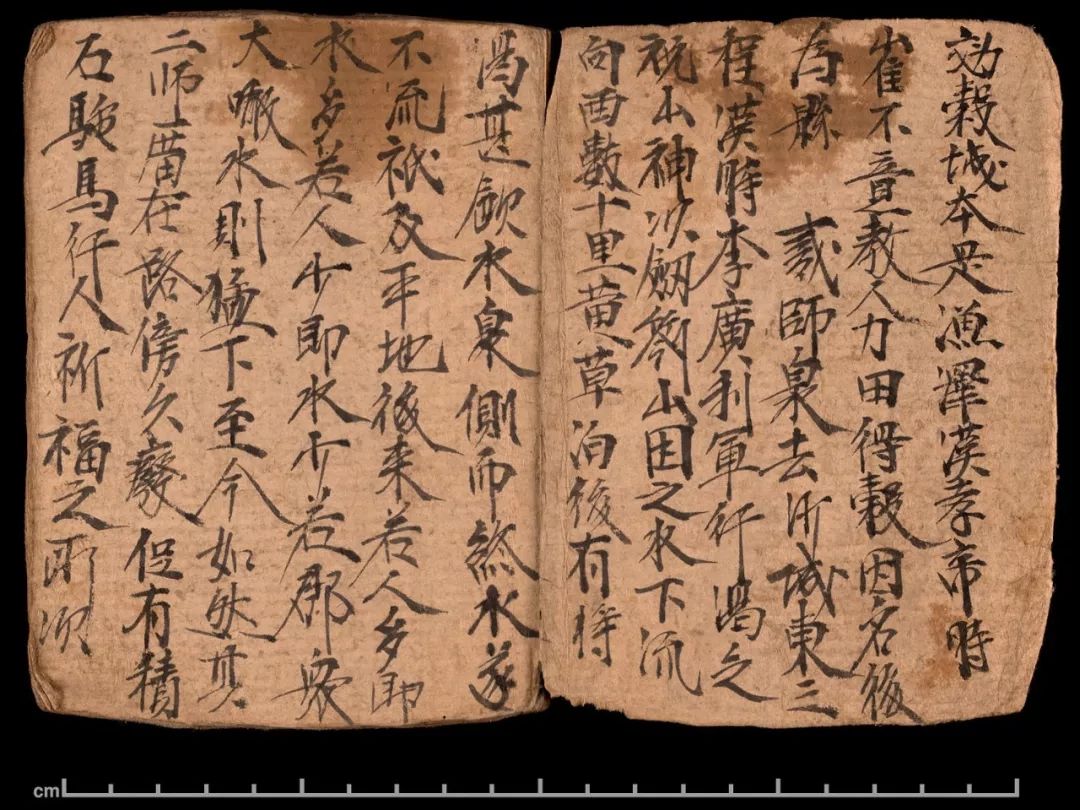 効穀城本是漁澤漢孝帝時
崔不意教人力田得穀因名後
為縣 貳師泉去沙城東三
程漢時李廣利軍行渴乏
祝山神以劒劄山因之水下流
向西數十里黃草泊後有将
渴甚飲水泉側而煞水遂
不流祗及平地後来若人多即
水多若人少即水少若郡衆
大噉水則猛下至今如然其
二師庿在路傍久廢但有積
石駞馬行人祈福之所次
cm